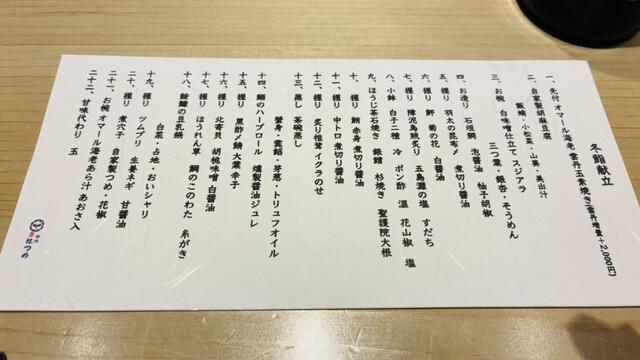 冬鮨献立
一、先付 オマール海老 雲丹玉素焼き(雲丹増量+2,000円)
二、自家製胡麻豆腐
飯蛸・小松菜・山葵・美出汁
三、お椀 白味噌仕立て スジアラ
三つ葉・銀杏・そうめん
四、お造り 石垣鯛 泡醤油 柚子胡椒
五、握り 羽太の昆布〆 煮切り醤油
六、握り 鮃 菊の花 白醤油
七、握り 障泥烏賊炙り 五島灘の塩 すだち
八、小鉢 白子二種 冷 ポン酢 温 花山椒 塩
九、ほうじ茶石焼き 銀鱈 杉焼き 聖護院大根
十、握り 鮪赤身 煮切り醤油
十一、握り 中トロ 煮切り醤油
十二、握り 炙り椎茸 イクラのせ
十三、蒸し 茶碗蒸し
蟹身・黄餡・芽葱・トリュフオイル
十四、鰤のハーブロール 燻製醤油ジュレ
十五、握り 黒酢〆鯖 大葉 辛子
十六、握り 北寄貝 胡桃味噌 白醤油
十七、握り ほうれん草 鯛のこのわた 糸がき
十八、鮟鱇の豆乳鍋
白菜・占地・おいシャリ
十九、握り ツムブリ 生姜ネギ 甘醤油
二十、握り 煮穴子 自家製つめ・花椒
二十一、お椀 オマール海老あら汁 あおさ入
二十二、甘味代わり 玉
はつめ